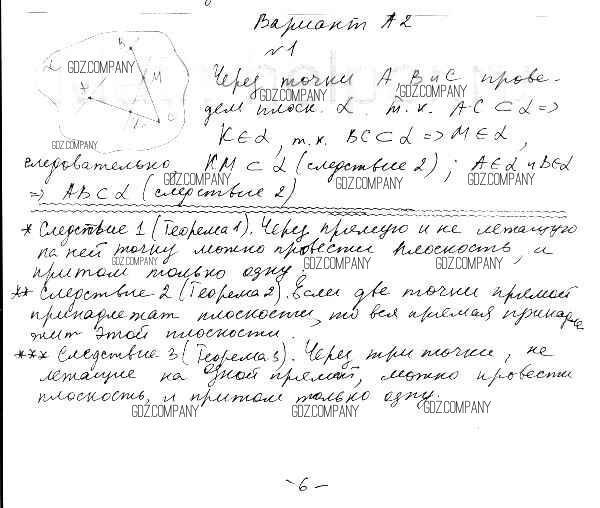 Вариант А2
№1
Через точки А, В и С прове-
дем плоск. α. т.к. AC ⊂ α =>
K∈α, т.к. BC ⊂ α => M∈α,
следовательно, KM ⊂ α (следствие 2); A∈α и B∈α
=> AB ⊂ α (следствие 2)
* Следствие 1 (Теорема 1). Через прямую и не лежащую
на ней точку можно провести плоскость, и
притом только одну
** Следствие 2 (Теорема 2). Если две точки прямой
принадлежат плоскости, то вся прямая принадле
жит этой плоскости.
*** Следствие 3 (Теорема 3). Через три точки, не
лежащие на одной прямой, можно провести
плоскость, и притом только одну.
-6-
α
B
A
M
K
C
GDZ.COMPANY
GDZ.COMPANY
GDZ.COMPANY
GDZ.COMPANY
GDZ.COMPANY
GDZ.COMPANY
GDZ.COMPANY
GDZ.COMPANY
GDZ.COMPANY
GDZ.COMPANY
GDZ.COMPANY
GDZ.COMPANY
GDZ.COMPANY